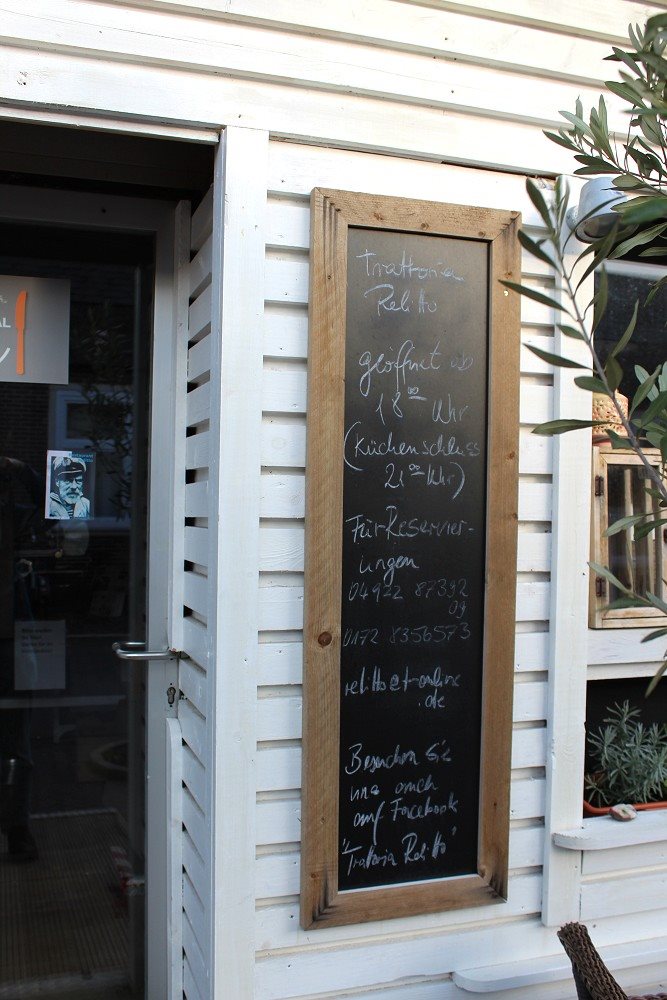 Trattoria
Relitto
geöffnet ab
18°° Uhr
(Küchenschluss
21°° Uhr)
Für Reservier-
ungen
04922 87392
09
0172 8356573
relitto@t-online
.de
Besuchen Sie
uns auch
auf Facebook
"Trattoria Relitto"
AL